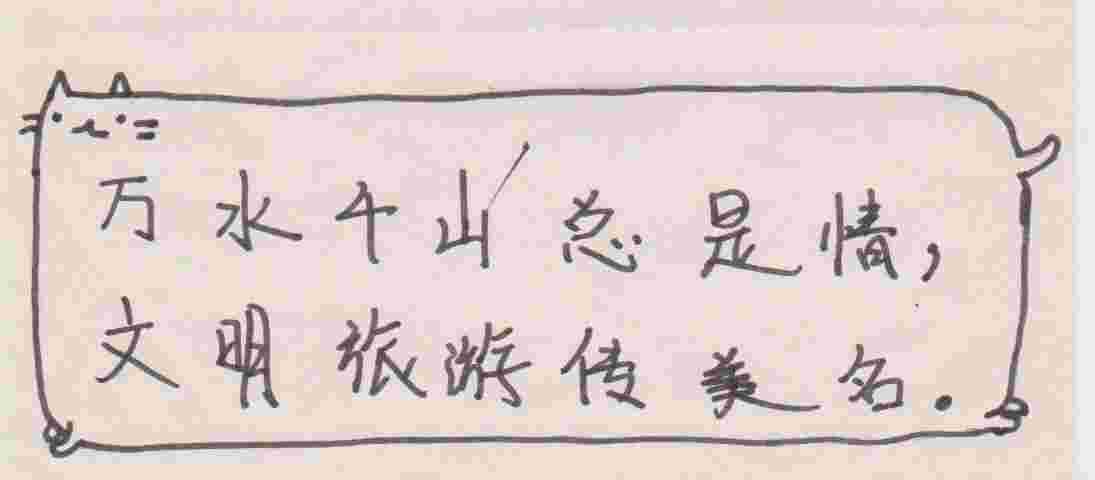 万水千山总是情，
文明旅游传美名.